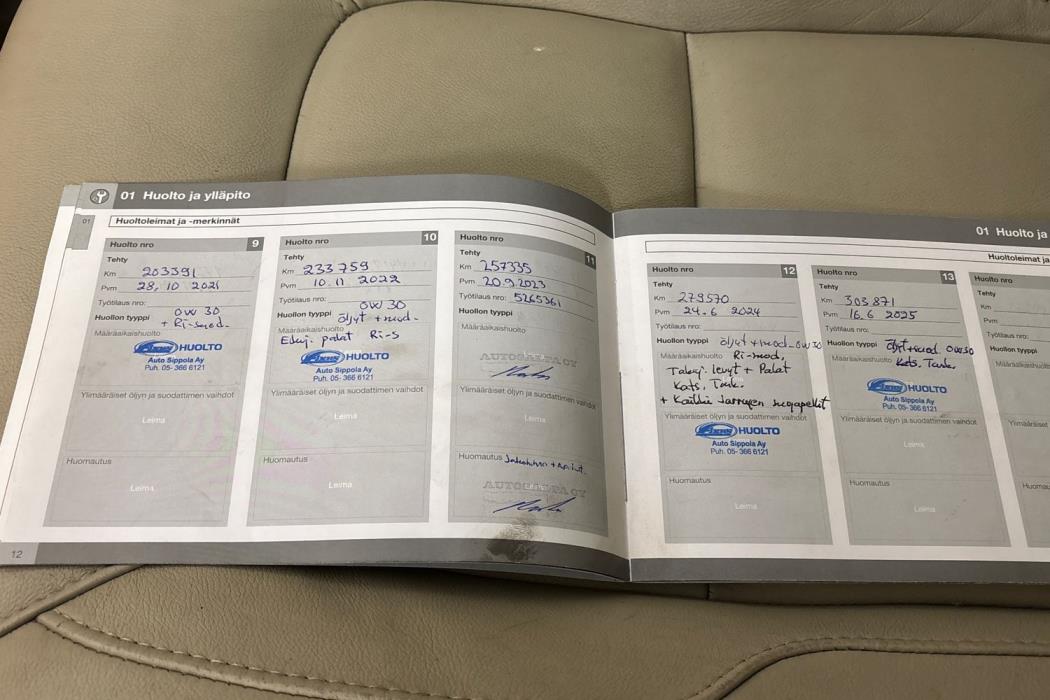 01 Huolto ja ylläpito
01
Huoltoleimat ja -merkinnät
Huolto nro 9
Tehty
Km 203391
Pvm 28.10 2021
Työtilaus nro:
Huollon tyyppi OW 30
+ Ri-suod.
Määräaikaishuolto
HUOLTO
Auto Sippola Ay
Puh. 05- 366 6121
Ylimääräiset öljyn ja suodattimen vaihdot
Leima
Huomautus
Leima
Huolto nro 10
Tehty
Km 233 759
Pvm 10.11 2022
Työtilaus nro: OW 30
Huollon tyyppi öljyt + suod.
Määräaikaishuolto
Etuj. palat Ri-s
HUOLTO
Auto Sippola Ay
Puh. 05- 366 6121
Ylimääräiset öljyn ja suodattimen vaihdot
Leima
Huomautus
Leima
Huolto nro 11
Tehty
Km 257335
Pvm 20.9.2023
Työtilaus nro: 5265361
Huollon tyyppi
Määräaikaishuolto
Ylimääräiset öljyn ja suodattimen vaihdot
Leima
Huomautus
12
01 Huolto ja
Huoltoleimat ja
Huolto nro 12
Tehty
Km 279570
Pvm 24.6 2024
Työtilaus nro:
Huollon tyyppi öljyt + suod. OW30
Määräaikaishuolto Ri-suod,
Takaj. levyt + Palat
Kats. Tark.
+ Kaikki Jarrujen suojapellit
Ylimääräiset öljyn ja suodattimen vaihdot
HUOLTO
Auto Sippola Ay
Puh. 05- 366 6121
Huomautus
Leima
Huolto nro 13
Tehty
Km 303 871
Pvm 16.6 2025
Työtilaus nro:
Huollon tyyppi öljyt + suod OW30
Määräaikaishuolto Kats. Tark.
HUOLTO
Auto Sippola Ay
Puh. 05- 366 6121
Ylimääräiset öljyn ja suodattimen vaihdot
Leima
Huomautus
Leima
Huolto nro
Tehty
Km
Pvm
Työtilaus nro:
Huollon tyyppi
Määräaikaishuolto